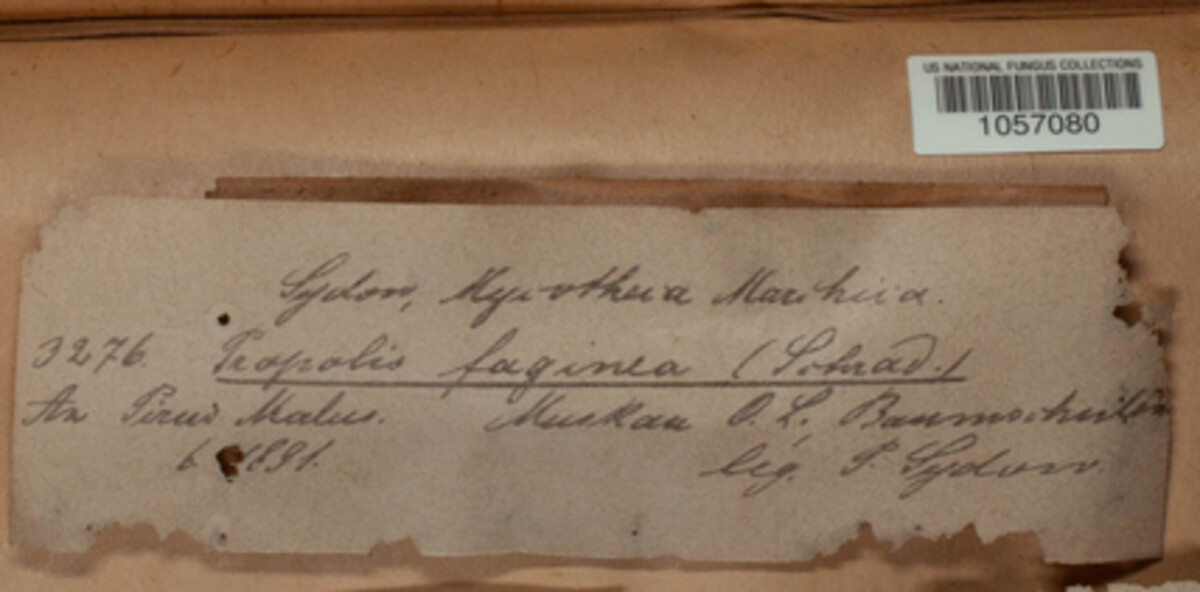 US NATIONAL FUNGUS COLLECTIONS
1057080
Sydow, Mycotheca Marchica.
3276. Propolis faginea (Schrad.)
An Pirus Malus. Muskau O. L. Baumschulen
6 1891. leg. P. Sydow